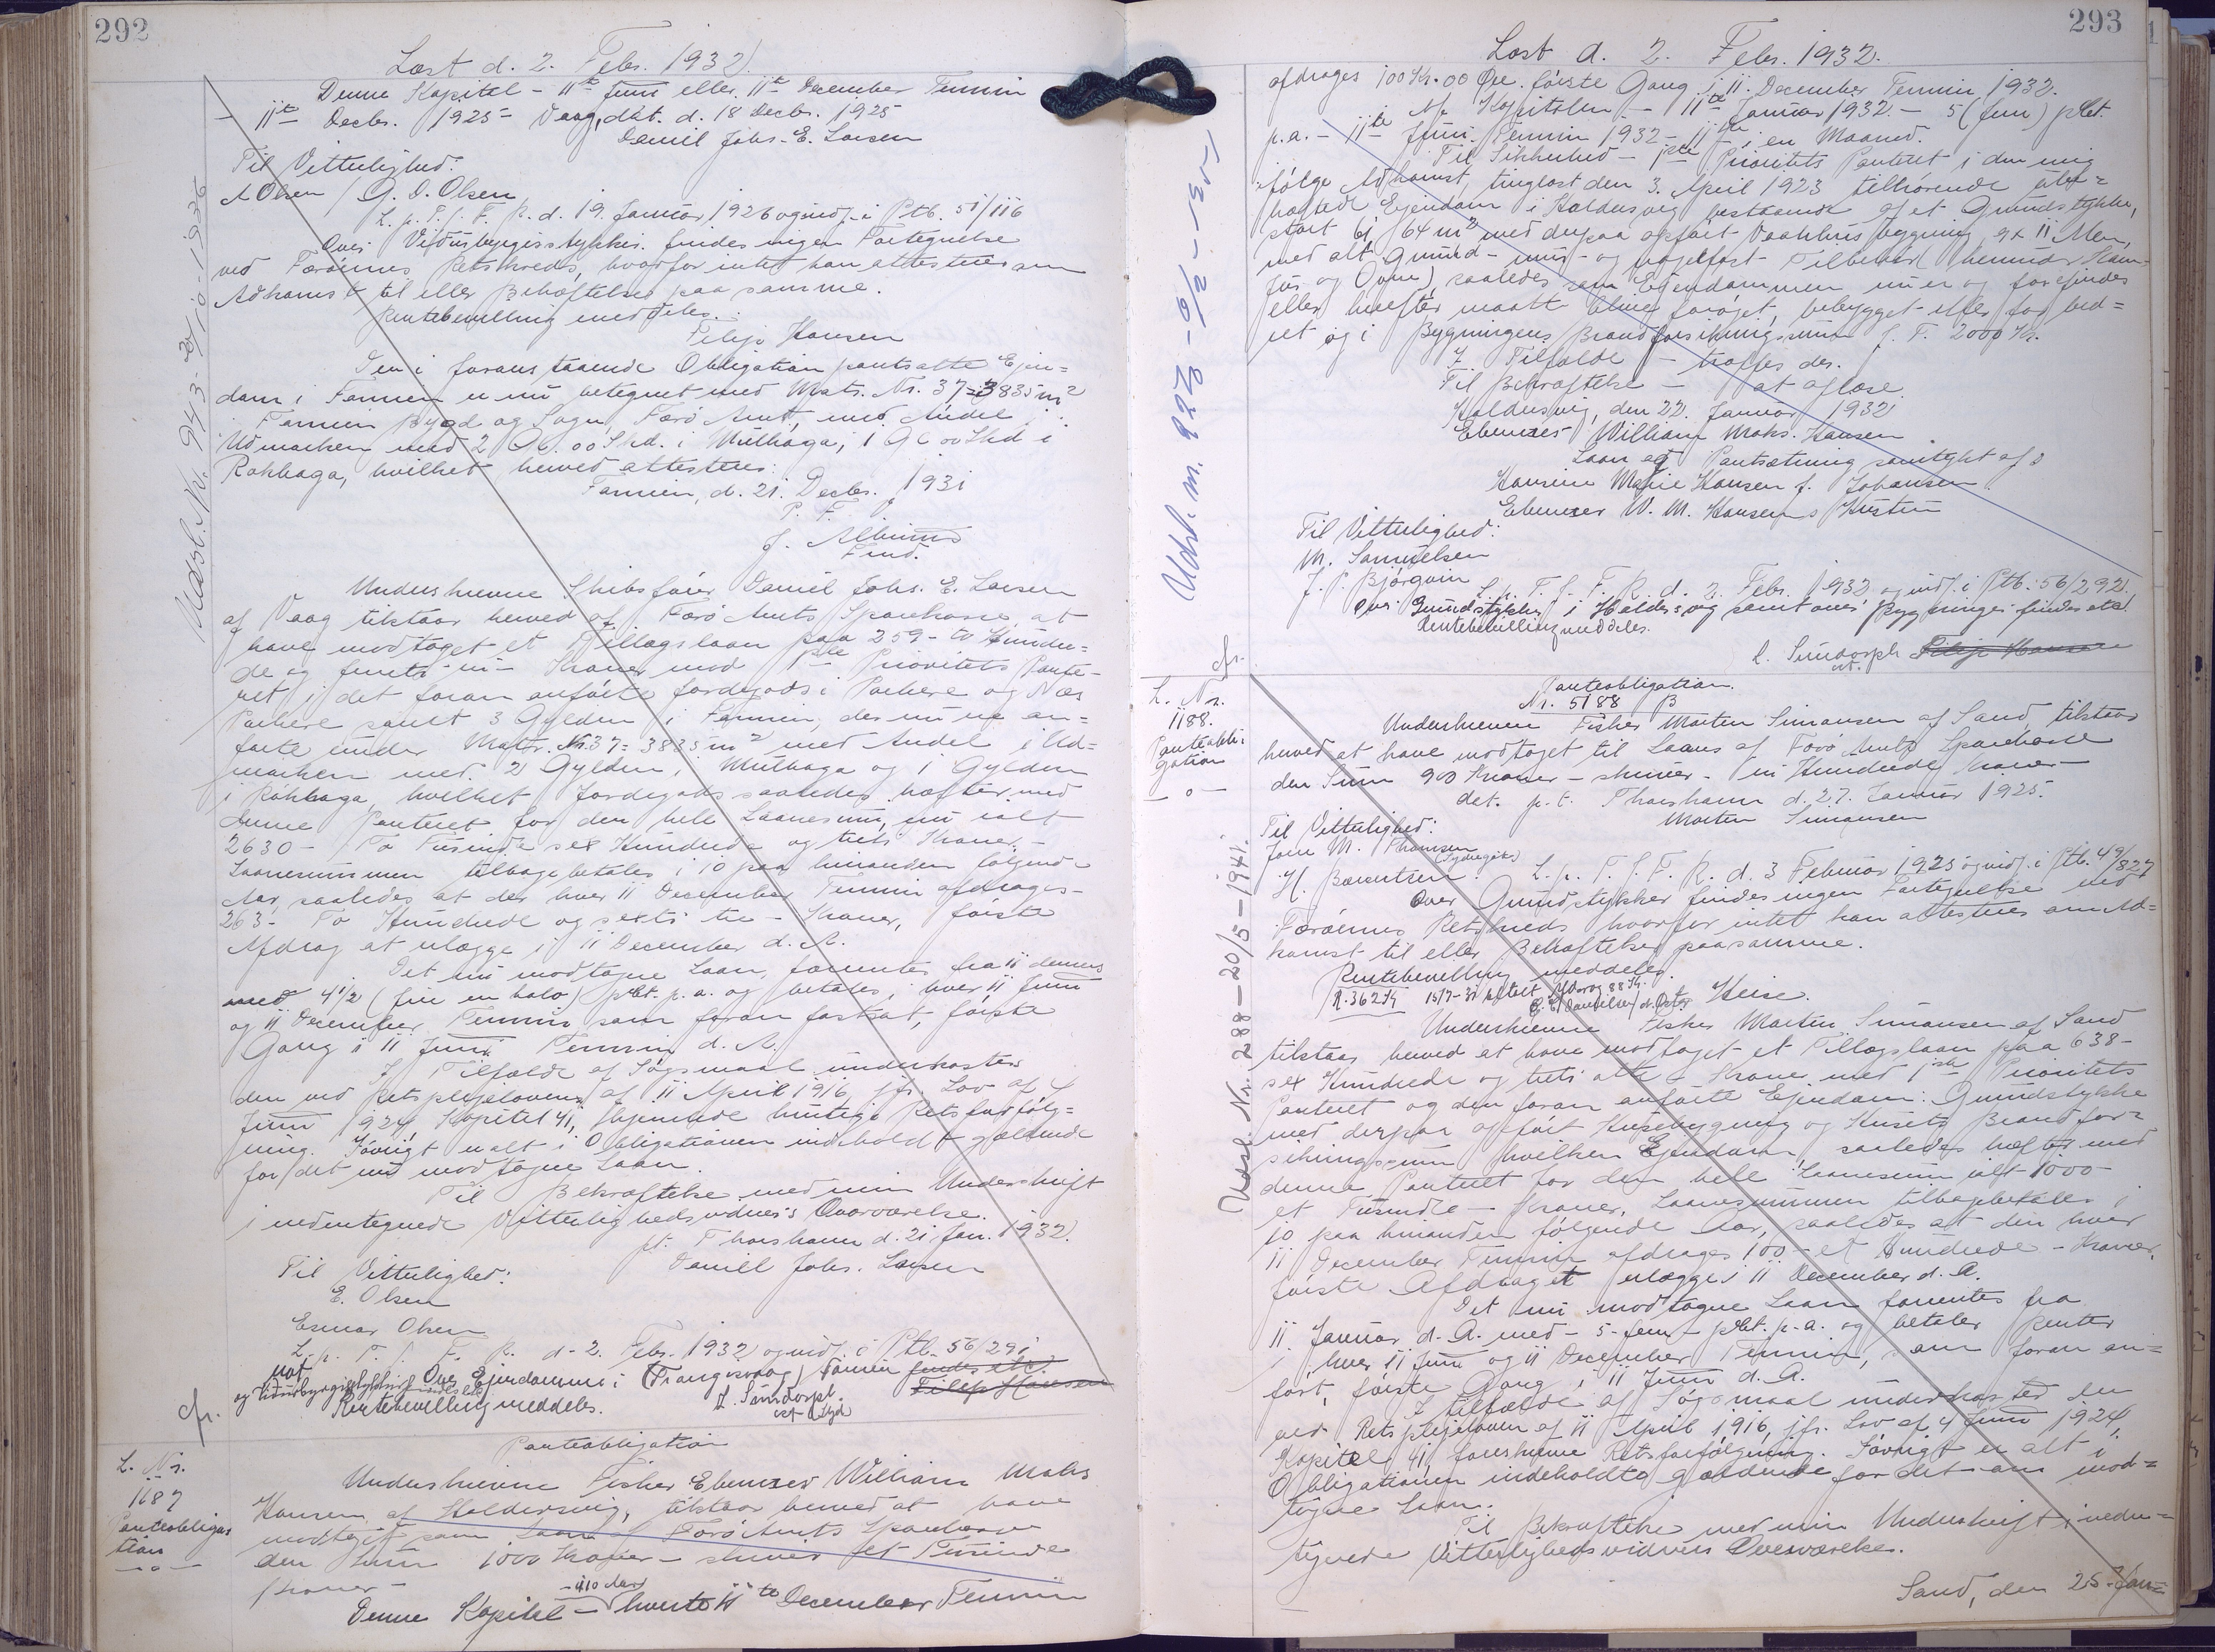 292
Læst d. 2. Febr. 1932.
Denne Kapital - 11te Juni eller 11te December Termin
11te Decbr. 1925 - Vaag, dat. d. 18 Decbr. 1925
Daniel Johs. E. Larsen
Til Vitterlighed:
A Olsen / G. D. Olsen
L. p. T. f. F. R. d. 19. Januar 1926 og indf. i Ptb. 51/116
Over findes ingen Fortegnelse
ved Færöernes Retskreds, hvorfor intet kan attesteres om
Adkomst til eller Behæftelser paa samme.
Rentebevilling meddeles.
Filip Hansen
Den i foranstaaende Obligation pantsatte Ejen=
dom i Famien er nu betegnet med Matr. Nr. 37 = 3835 m2
Famien Bygd og Sogn, Færö Amt, med Andel i
Udmarken med 2 Gl. 00 Skd. i Mulhaga, 1 Gl. 00 Skd i
Rokhaga, hvilket herved attesteres.
Famien, d. 21. Decbr. 1931
P. F.
J. Albinus
Fmd.
Underskrevne Skibsförer Daniel Johs. E. Larsen
af Vaag tilstaar herved af Færö Amts Sparekasse at
have modtaget et Tillægslaan paa 259 - to Hundre=
de og femti ni - Kroner mod 1ste Prioritets Pante-
ret i det foran anförte Jordegods i Porkere og Nes
Porkere samt 3 Gylden i Famien, der nu er an=
förte under Matr. Nr. 37 = 3835 m2 med Andel i Ud=
marken med 2 Gylden i Mulhaga og 1 Gylden
i Rokhaga, hvilket Jordegods saaledes hæfter med
denne Panteret for den hele Laanesum, nu ialt
2630 - To Tusinde sex Hundrede og treti Kroner. -
Laanesummen tilbagebetales i 10 paa hinanden følgende
Aar, saaledes at der hver 11 December Termin afdrages -
263 - To Hundrede og sexti tre - Kroner, förste
Afdrag at erlægge i 11 December d. A.
Det nu modtagne Laan forrentes fra 11 dennes
med 4 1/2 (fire en halv) pCt. p. a. og betales i hver 11 Juni
og 11 December Termin som foran fastsat, förste
Gang i 11 Juni Termin d. A.
I Tilfælde af Søgsmaal underkastes
den ved Retsplejelovens af 11 April 1916, jfr. Lov af 4
Juni 1924 Kapitel 41, hjemlede hurtige Retsforfölg=
ning. Iövrigt er alt i Obligationen indeholdt gældende
for det nu modtagne Laan.
Til Bekræftelse med min Underskrift
i nedentegnede Vitterlighedsvidner's Overværelse.
pt. Thorshavn d. 21 Jan. 1932.
Daniell Johs. Larsen
Til Vitterlighed:
E. Olsen
Esmar Olsen
L. p. T. f. F. R. d. 2. Febr. 1932 og indf. i Ptb. 56/291
Over Ejendommen i (Trangisvaag) Famien findes etc.
Filip Hansen
Rentebevilling meddeles.
L. Sundorph
cfr.
L. Nr.
1187
Panteobliga=
tion
- o -
Panteobligation
Underskrevne Fisker Ebenezer William Maks
Hansen af Haldersvig, tilstaar herved at have
modtaget som Laan af Færö Amts Sparekasse
den Sum 1000 Kroner - skriver et Tusinde
Kroner -
- i 10 Aar
Denne Kapital - hverte 11te December Termin
Udsl. Nr. 943 - 21/10 - 1936
293
Læst d. 2. Febr. 1932.
afdrages 100 Kr. 00 Øre förste Gang i 11. December Termin 1932.
Af Kapitalen - 11te Januar 1932 - 5 (fem) pCt.
p.a. - 11te Juni Termin 1932 - i en Maaned.
Til Sikkerhed - 1ste Prioritets Panteret i den mig
ifölge Adkomst, tinglæst den 3. April 1923 tilhørende ube=
hæftede Ejendom i Haldersvig bestaaende af et Grundstykke,
stort 64 m2 med derpaa opført Vaaningshusbygning, 9 x 11 Alen,
med alt grund- mur- og nagelfast Tilbehør (herunder Kom-
fur og Ovne), saaledes som Ejendommen nu er og forefindes
eller herefter maatte blive forøget, bebygget eller forbed=
ret og i Bygningens Brandforsikringssum f. T. 2000 Kr.
I Tilfælde - træffes der.
Til Bekræftelse - at aflæse.
Haldersvig, den 22. Januar 1932
Ebenezer William Maks. Hansen
Laan og Pantsætning samtykt af:
Hansine Marie Hansen f. Johansen
Ebenezer W. M. Hansens Hustru
Til Vitterlighed:
M. Samuelsen
J. P. Bjørgvin
L. p. T. f. F. R. d. 2. Febr. 1932 og indf. i Ptb. 56/292.
Over Grundstykke i Haldersvig samt over Bygninger findes etc.
Rentebevilling meddeles.
L. Sundorph Filip Hansen
cst.
Udsl. Nr.
cfr.
L. Nr.
1188.
Panteobli=
gation
- o -
Panteobligation.
Nr. 5188 B
Underskrevne Fisker Morten Simonsen af Sand, tilstaar
herved at have modtaget til Laans af Færö Amts Sparekasse
den Sum 900 Kroner - skriver - ni Hundrede Kroner -
dat. p. t. Thorshavn d. 27. Januar 1925.
Morten Simonsen
Til Vitterlighed:
Joen M. Thomsen
(Sydregöta)
H. Bærentsen
L. p. T. f. F. R. d. 3 Februar 1925 og indf. i Ptb. 49/827
Over Grundstykker findes ingen Fortegnelse ved
Færöernes Retskreds hvorfor intet kan attesteres om Ad=
komst til eller Behæftelser paa samme.
Rentebevilling meddeles.
R. 362 Kr 15/7-31 betalt Afdrag 88 Kr. Heise.
Underskrevne Fisker Morten Simonsen af Sand
tilstaar herved at have modtaget et Tillægslaan paa 638 -
sex Hundrede og treti otte - Kroner mod 1ste Prioritets
Panteret og den foran anförte Ejendom: Grundstykke
med derpaa opfört Husebygning og Husets Brandfor=
sikringssum hvilken Ejendom saaledes hæfter med
denne Panteret for den hele Laanesum ialt 1000 -
et Tusinde - Kroner, Laanesummen tilbagebetales i
10 paa hinanden følgende Aar, saaledes at der hver
11 December Termin afdrages 100 - et Hundrede - Kroner,
förste Afdraget erlægges 11 December d. A.
Det nu modtagne Laan forrentes fra
11 Januar d. A. med - 5 - fem - pCt. p. a. og betaler Renter
i hver 11 Juni og 11 December Termin, som foran an=
fört, förste Gang i 11 Juni d. A.
I tilfælde af Søgsmaal underkastes den
ved Retsplejeloven af 11 April 1916, jfr. Lov af 4 Juni 1924,
Kapitel 41, foreskrevne Retsforfölgning. Iövrigt er alt i
Obligationen indeholdte gældende for det nu mod=
tagne Laan.
Til Bekræftelse med min Underskrift i neden=
tegnede Vitterlighedsvidners Overværelse.
Sand, den 25. Jan=
Udsl. Nr. 288 - 20/5 - 1941.